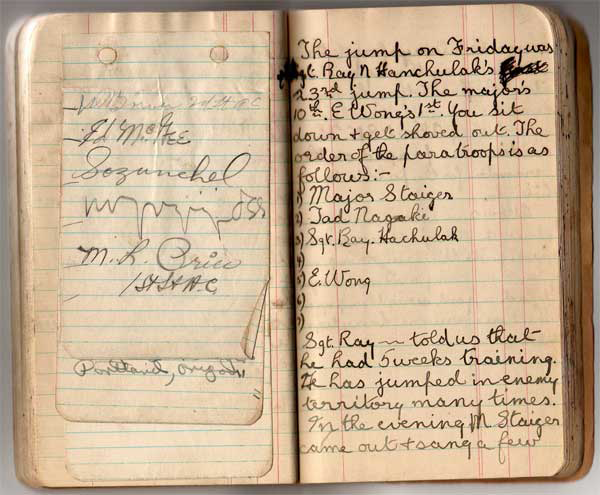 2nd Lt A C
Ed McGee
Sozunchel
OSS
M. L. Orice
1st Lt A-C
Portland, Oregon
The jump on Friday was
Sgt. Ray N Hanchulak's
23rd jump. The major's
10th. E Wong's 1st. You sit
down + get shoved out. The
order of the paratroops is as
follows:-
1) Major Staiger
2) Tad Nagaki
3) Sgt. Ray. Hachulak
4)
5) E. Wong
6)
7)
Sgt. Ray ~~ told us that
he had 5 weeks training.
He has jumped in enemy
territory many times.
In the evening M Staiger
came out + sang a few